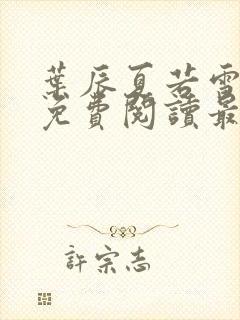 葉辰夏若雪
免費閱讀最
許宗志